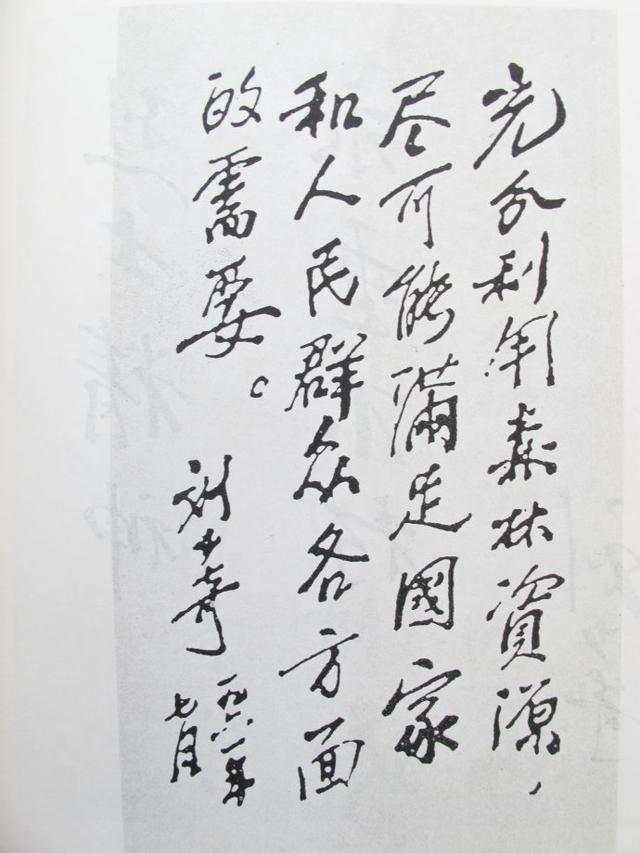 充分利用森林資源，
尽可能滿足國家
和人民群众各方面
的需要。
刘少奇
一九六一年
七月